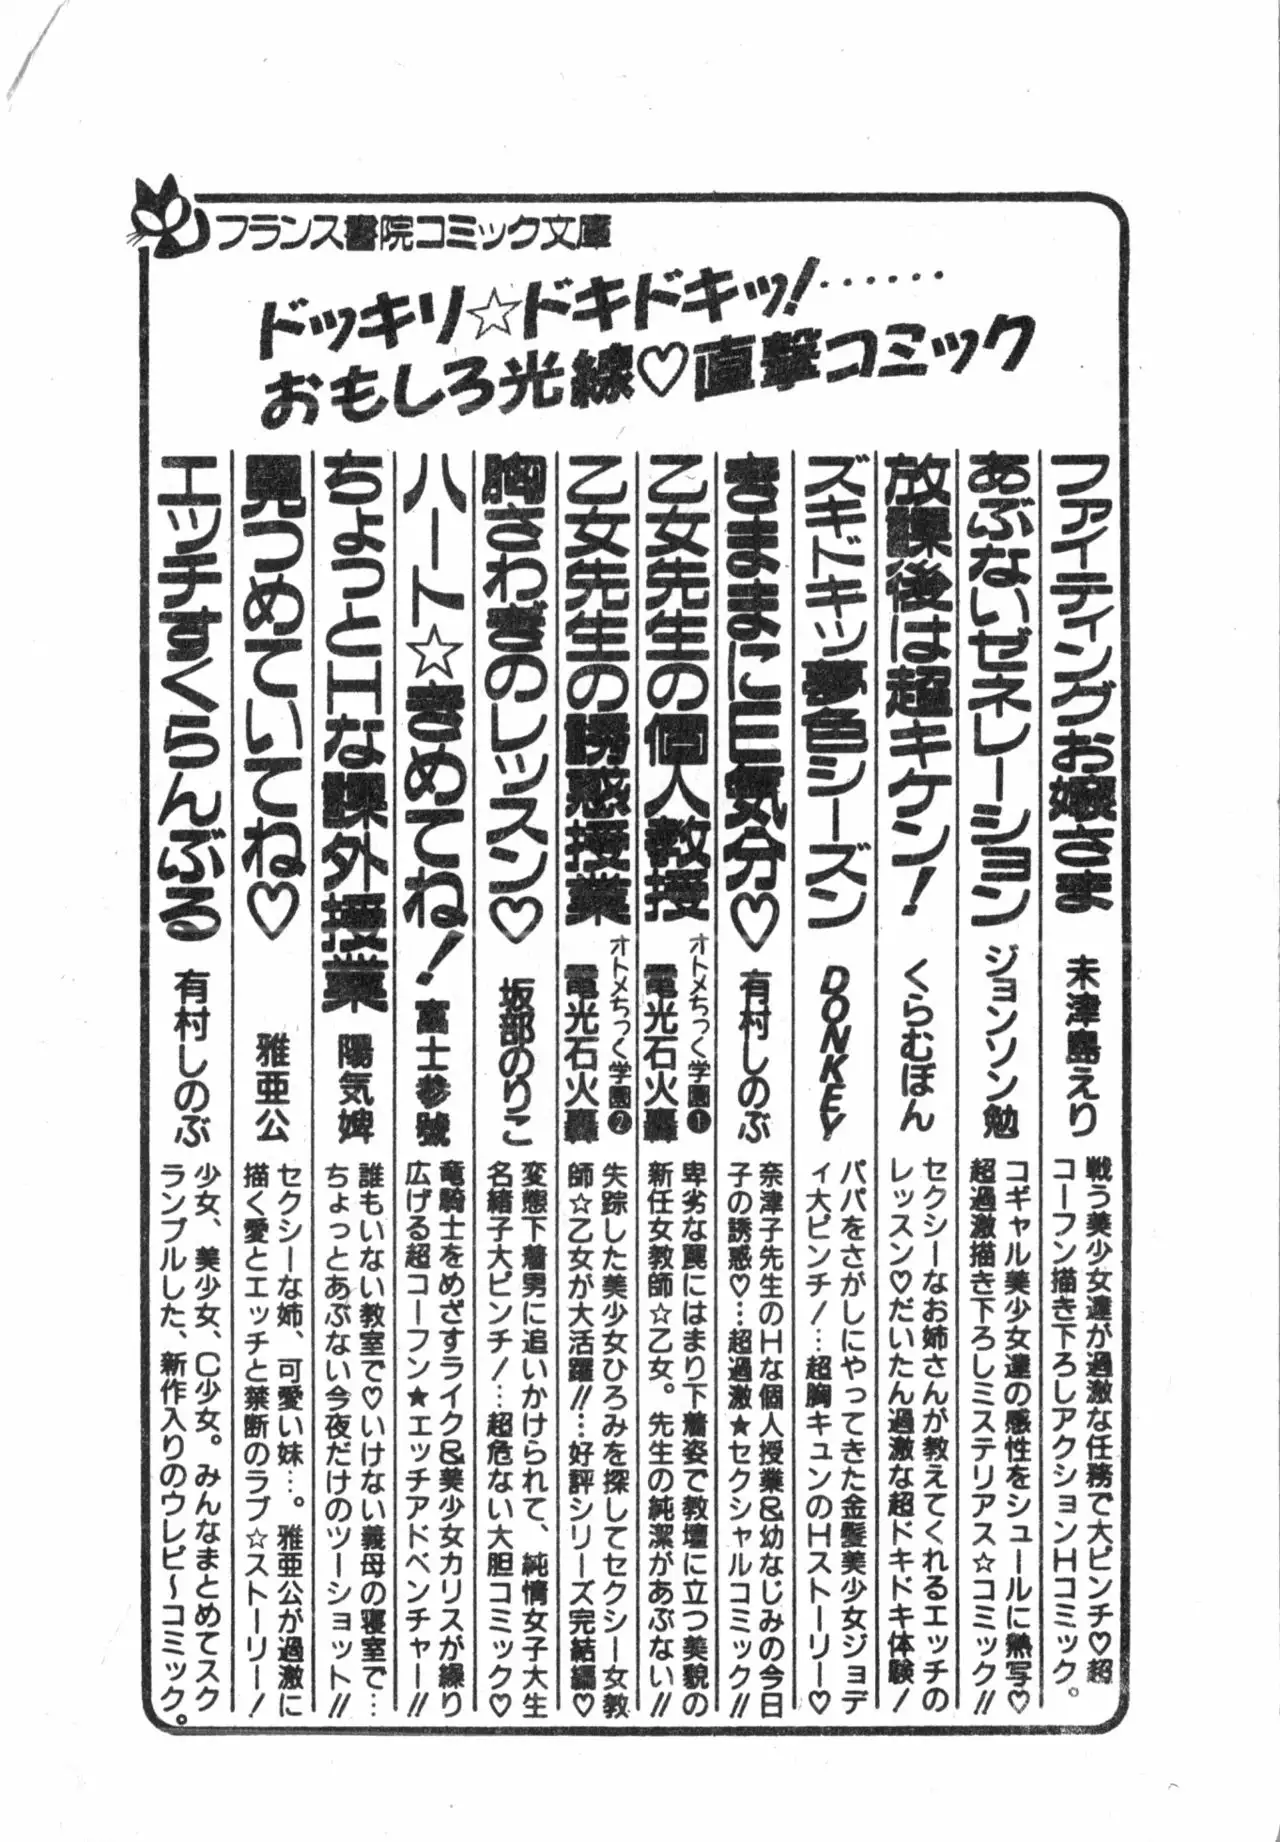 フランス書院コミック文庫
ドッキリ☆ドキドキッ!……
おもしろ光線♡直撃コミック
ファイティングお嬢さま 未津島えり
戦う美少女達が過激な任務で大ピンチ♡超
コーフン描き下ろしアクションHコミック。
あぶないゼネレーション ジョンソン勉
コギャル美少女達の感性をシュールに熱写♡
超過激描き下ろしミステリアス☆コミック!!
放課後は超キケン! くらむぼん
セクシーなお姉さんが教えてくれるエッチの
レッスン♡だいたん過激な超ドキドキ体験!
ズキドキッ夢色シーズン DONKEY
パパをさがしにやってきた金髪美少女ジョデ
ィ大ピンチ!…超胸キュンのHストーリー♡
きままにH気分♡ 有村しのぶ
奈津子先生のHな個人授業&幼なじみの今日
子の誘惑♡…超過激★セクシャルコミック!!
乙女先生の個人教授 オトメちっく学園① 電光石火轟
卑劣な罠にはまり下着姿で教壇に立つ美貌の
新任女教師☆乙女。先生の純潔があぶない!!
乙女先生の誘惑授業 オトメちっく学園② 電光石火轟
失踪した美少女ひろみを探してセクシー女教
師☆乙女が大活躍!!…好評シリーズ完結編♡
胸さわぎのレッスン♡ 坂部のりこ
変態下着男に追いかけられて、純情女子大生
名緒子大ピンチ!…超危ない大胆コミック♡
ハート☆きめてね!富士参號
竜騎士をめざすライク&美少女カリスが繰り
広げる超コーフン★エッチアドベンチャー!!
ちょっとHな課外授業 陽気婢
誰もいない教室で♡いけない義母の寝室で…
ちょっとあぶない今夜だけのツーショット!!
見つめていてね♡ 雅亜公
セクシーな姉、可愛い妹…。雅亜公が過激に
描く愛とエッチと禁断のラブ☆ストーリー!
エッチすくらんぶる 有村しのぶ
少女、美少女、C少女。みんなまとめてスク
ランブルした、新作入りのウレピ〜コミック。